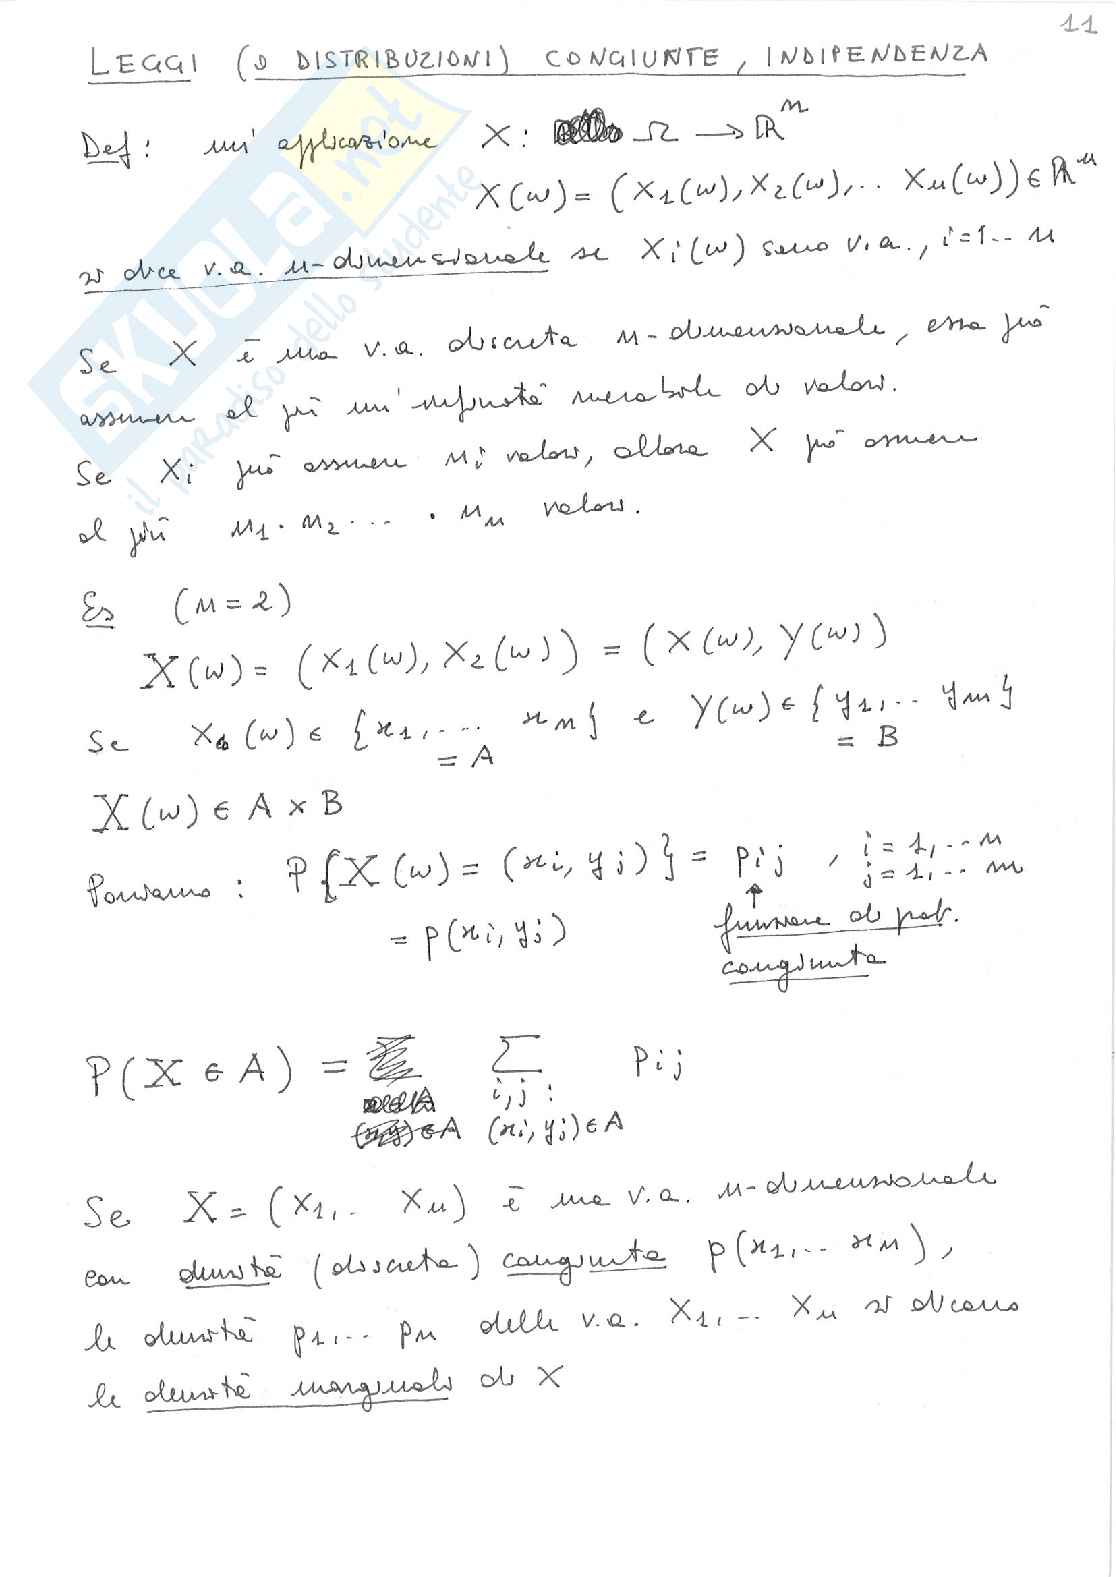 11
LEGGI (O DISTRIBUZIONI) CONGIUNTE, INDIPENDENZA
Def: un'applicazione X: Ω → ℝⁿ
X(ω) = (X₁(ω), X₂(ω), .. Xₙ(ω)) ∈ ℝⁿ
si dice v.a. n-dimensionale se Xᵢ(ω) sono v.a., i=1.. n
Se X è una v.a. discreta n-dimensionale, essa può
assumere al più un'infinità numerabile di valori.
Se Xᵢ può assumere nᵢ valori, allora X può assumere
al più n₁ · n₂ · ... · nₙ valori.
Es (n = 2)
X(ω) = (X₁(ω), X₂(ω)) = (X(ω), Y(ω))
Se X (ω) ∈ {x₁, ... xₙ} e Y(ω) ∈ {y₁, .. yₘ}
= A = B
X(ω) ∈ A × B
Poniamo: P{X(ω) = (xᵢ, yⱼ)} = pᵢⱼ , i = 1, .. n
j = 1, .. m
= p(xᵢ, yⱼ) ↑ funzione di prob.
congiunta
P(X ∈ A) = ∑ pᵢⱼ
i,j :
(xᵢ, yⱼ) ∈ A
Se X = (X₁, .. Xₙ) è una v.a. n-dimensionale
con densità (discreta) congiunta p(x₁, .. xₙ),
le densità p₁, .. pₙ delle v.a. X₁, .. Xₙ si dicono
le densità marginali di X
SKUOLA.net
il paradiso dello studente